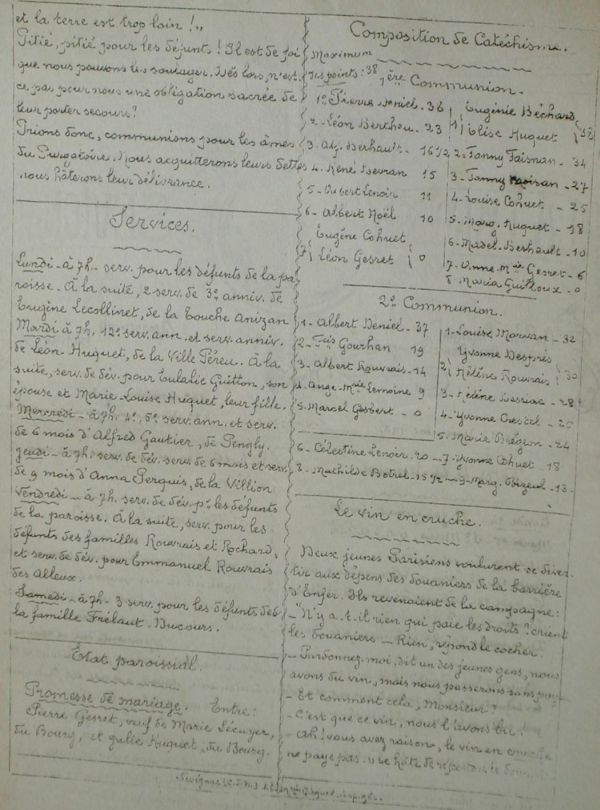 et la terre est trop loin !,,
Pitié, pitié pour les défunts ! Il est de foi
que nous pouvons les soulager. Dés lors, n'est-
ce pas pour nous une obligation sacrée de
leur porter secours ?
Prions donc, communions pour les âmes
du Purgatoire. Nous acquitterons leurs dettes
nous hâterons leur délivrance.
Services.
Lundi - à 7h - serv. pour les défunts de la pa
roisse. À la suite, 2 serv. de 3e anniv. de
Eugène Lecollinet, de la Touche Anizan
Mardi à 7h, 12e serv. ann. et serv. anniv.
de Léon Huguet, de la Ville Péreu. À la
suite, serv. de dév. pour Eulalie Guitton, son
épouse et Marie-Louise Huguet, leur fille.
Mercredi - à 7h - 4e, 5e serv. ann. et serv.
de 6 mois d'Alfred Gautier, de Pengly.
Jeudi - à 7h - serv. de dév. serv. de 6 mois et serv.
de 9 mois d'Anna Perquis, de la Villion
Vendredi - à 7h. serv. de dév. pr les défunts
de la paroisse. À la suite, serv. pour les
défunts des familles Rouvrais et Rochard,
et serv. de dév. pour Emmanuel Rouvrais
des Alleux.
Samedi - à 7h - 3 serv. pour les défunts de
la famille Frélaut-Ducours.
Etat paroissial.
Promesse de mariage. Entre :
Pierre Gesret, veuf de Marie Lécuyer,
du Bourg, et Julie Huguet, du Bourg.
Composition de Catéchisme.
Maximum
des points : 38
1ère Communion.
1. Pierre Deniel - 36
2. Léon Berthou - 23
3. Alf. Berhault - 16 1/2
4. René Devran 15
5 - Robert Lenoir 11
6 - Albert Noël 10
Eugène Cohuet
7) Léon Gesret 0
Eugénie Béchard
1) Elise Huguet 38
2. Fanny Faisnan - 34
3. Fanny - 27
4. Louise Cohuet - 25
5. Marg. Huguet - 18
6. Madel. Berhault - 10
7. Anne Mie Gesret - 6
8. Maria Guilloux - 0
2e Communion.
1 - Albert Deniel - 37
2 - Fois Gourhan 19
3 - Albert Rouvrais - 14
4. Ange-Mie Lemoine 9
5. Marcel Gesbert - 0
1. Louise Morvan - 32
Yvonne Després
2) Hélène Rouvrais 30
3 - Hélène - 28
4 - Yvonne - 25
5. Maria - 24
6. Célestine Lenoir - 20 - 7. Yvonne Cohuet 18
8. Mathilde Botrel - 15 1/2 - 9. Marg. - 13.
Le vin en cruche.
Deux jeunes Parisiens voulurent se diver
tir aux dépens des douaniers de la barrière
d'Enfer. Ils revenaient de la campagne :
- "N'y a-t-il rien qui paie les droits ? crient
les douaniers - Rien, répond le cocher.
- Pardonnez-moi, dit un des jeunes gens, nous
avons du vin, mais nous passerons sans payer
- Et comment cela, Monsieur ?
- C'est que ce vin, nous l'avons bu !
- Ah ! vous avez raison, le vin en cruche
ne paye pas